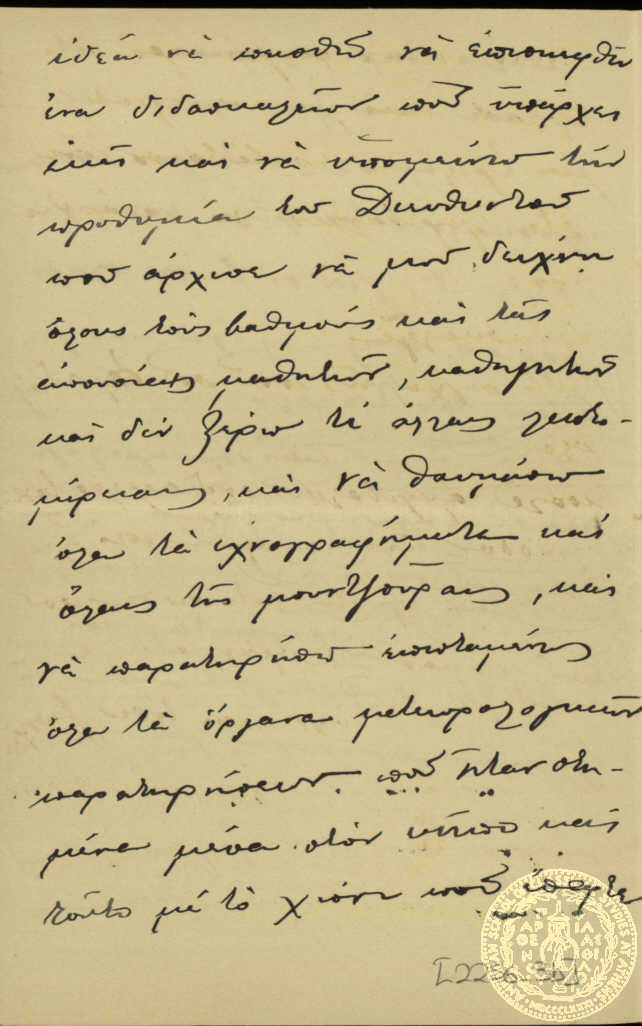 ἰδέα νὰ πεισθῶ νὰ ἐπισκεφθῶ
ἕνα διδασκαλεῖον ποῦ ὑπάρχει
ἐκεῖ καὶ νὰ ὑπομείνω τὴν
προθυμία τοῦ Διευθυντοῦ
ποῦ ἄρχισε νὰ μοῦ δειχνῃ
ὅλους τοὺς βαθμοὺς καὶ τὰς
ἀπουσίας μαθητῶν, καθηγητῶν
καὶ δὲν ξέρω τί ἄλλας λεπτο-
μέρειας, καὶ νὰ θαυμάσω
ὅλα τὰ ἰχνογραφήματα καὶ
ὅλαις τῆς μουντζούραις, καὶ
νὰ παρατηρήσω
ὅλα τὰ ὄργανα μετεωρολογικῶν
παρατηρήσεων ποῦ ἦταν στη-
μένα μέσα στὸν κῆπο καὶ
τοῦτο μὲ τὸ χιόνι ποῦ ἔπεφτε
[2256-3b]